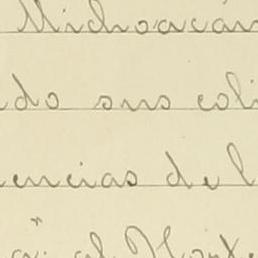 Michoacán
do sus coli
encias de l